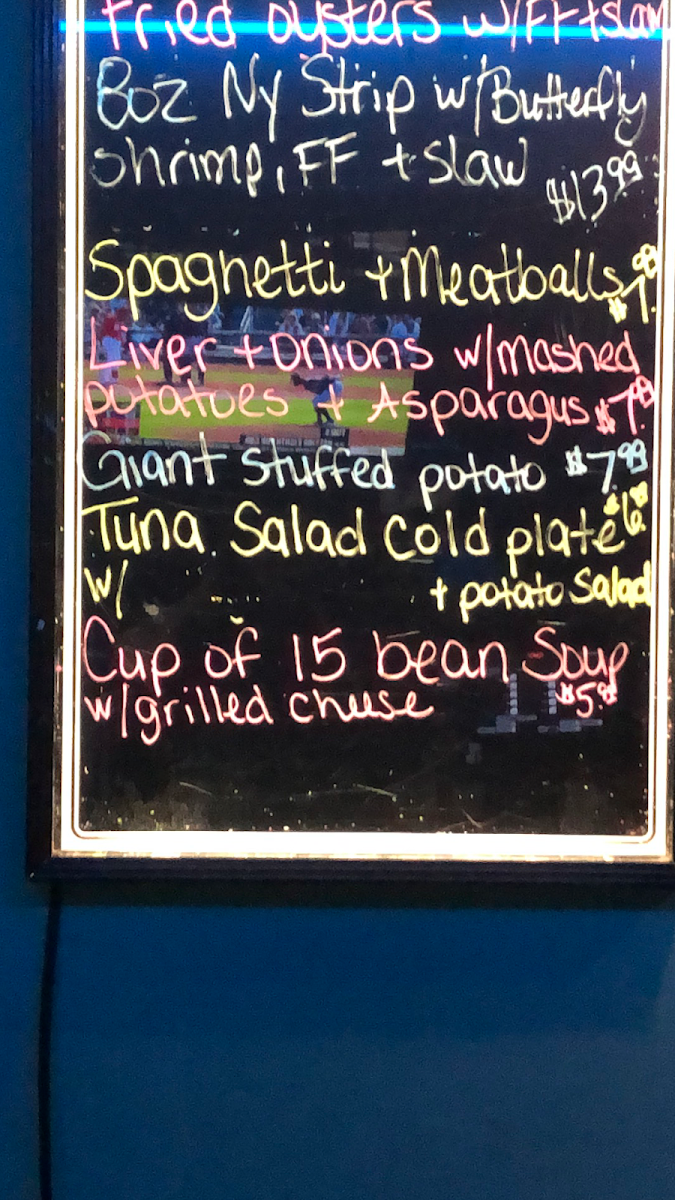 Fried oysters w/FF+slaw
8oz Ny Strip w/Butterfly
shrimp, FF + slaw $13.99
Spaghetti + Meatballs $7.99
Liver + onions w/mashed
potatoes + Asparagus $7.99
Giant Stuffed potato $7.99
Tuna Salad Cold plate $6.99
w/ + potato Salad
Cup of 15 bean Soup
w/grilled cheese $5.95